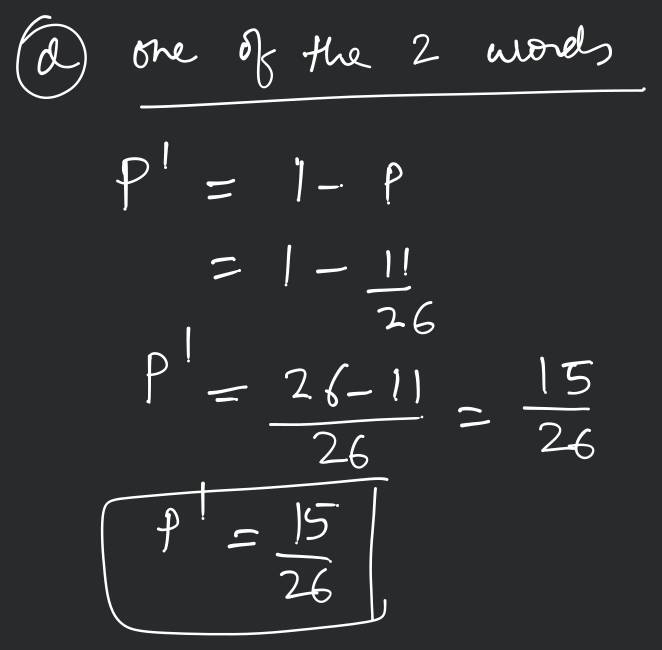 (d) one of the 2 words
P' = 1 - P
= 1 - 11/26
P' = 26-11/26 = 15/26
P' = 15/26